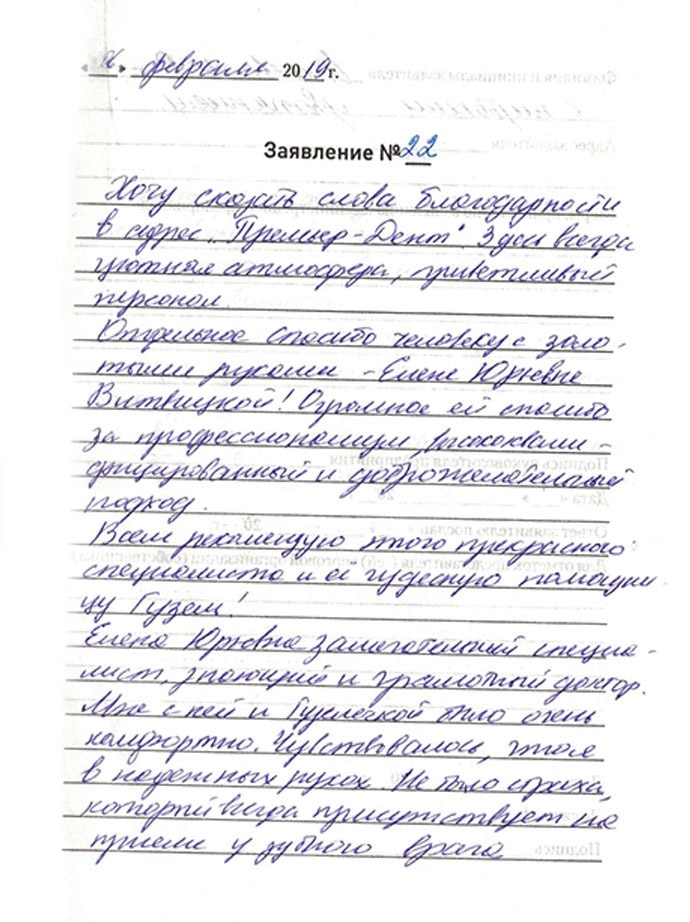 « » февраля 2019 г.
Заявление № 22
Хочу сказать слова благодарности
в адрес „Премьер-Дент". Здесь всегда
уютная атмосфера, приветливый
персонал.
Отдельное спасибо человеку с золо-
тыми руками - Елене Юрьевне
Витвицкой! Огромное ей спасибо
за профессионализм, высококвали-
фицированный и доброжелательный
подход.
Всем рекомендую этого прекрасного
специалиста и её чудесную помощни
цу Гузем!
Елена Юрьевна замечательный специа-
лист, знающий и грамотный доктор.
Мне с ней и Гузелечкой было очень
комфортно. Чувствовалось, что я
в надежных руках. Не было страха,
который всегда присутствует на
приеме у зубного врача